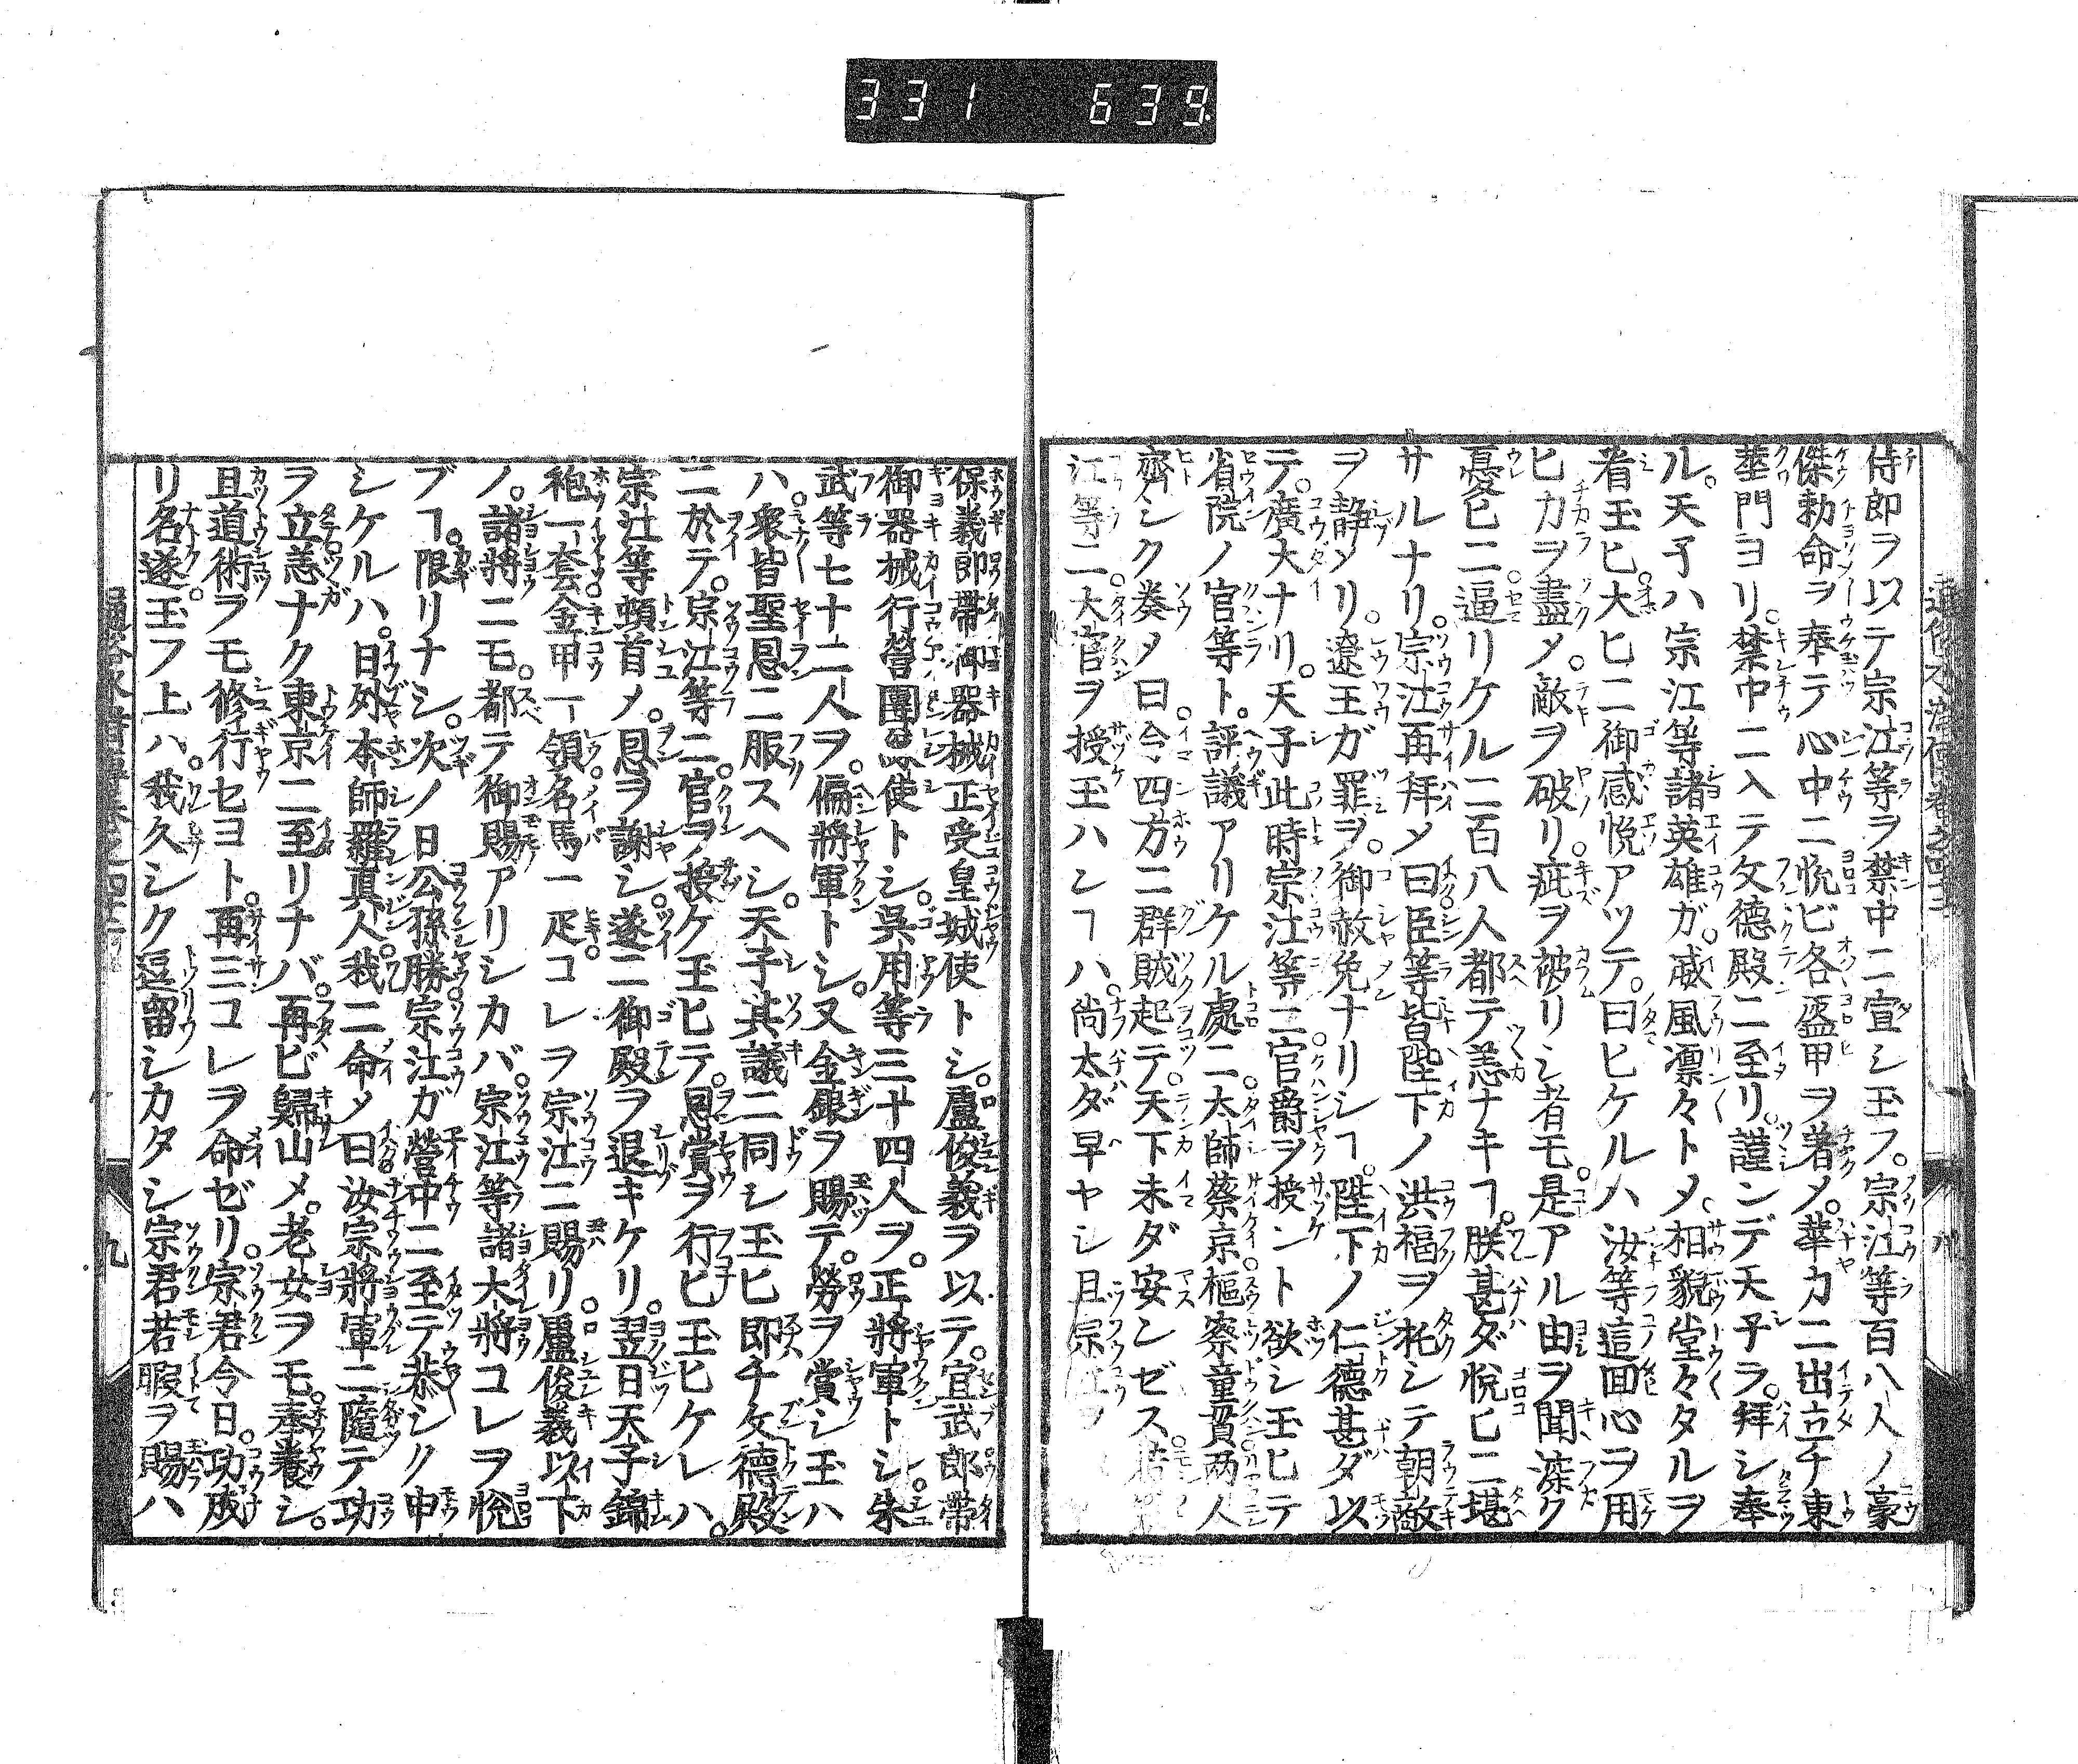 331 639
侍郎ヲ以テ宗江等ヲ禁中ニ宣シ玉フ。宗江等百八人ノ豪
傑勅命ヲ奉テ心中ニ悦ビ各盔甲ヲ著メ。華カニ出立チ東
華門ヨリ。禁中ニ入テ文德殿ニ至リ。謹ンデ天子ヲ。拜シ奉
ル。天子ハ宗江等諸英雄ガ。威風凛々トメ、相貌堂々タルヲ
看玉ヒ。大ヒニ御感悦アツテ。曰ヒケルハ汝等這回心ヲ用
ヒカヲ盡メ。敵ヲ破リ。疵ヲ被リシ者モ。是アル由ヲ聞深ク
憂色ニ逼リケルニ百八人都テ恙ナキヿ。朕甚ダ悦ヒニ堪
サルナリ。宗江再拜メ曰臣等皆陛下ノ洪福ヲ托シテ朝敵
ヲ静メリ。遼王ガ罪ヲ。御赦免ナリシヿ。陛下ノ仁德甚ダ以
テ。廣大ナリ。天子此時宗江等ニ官爵ヲ授ント欲シ玉ヒテ
省院ノ官等ト。評議アリケル處ニ太師蔡京。樞密童貫兩人
齊シク奏メ曰。今四方ニ群賊起テ。天下未ダ安ンゼス。
江等ニ大官ヲ授玉ハンヿハ。尚太ダ早ヤシ且宗江ヲ
保義郎帶御器械正受皇城使トシ。盧俊義ヲ以テ。宣武郎帶
御器械行營團練使トシ。吳用等三十四人ヲ。正將軍トシ。朱
武等七十二人ヲ。偏將軍トシ。又金銀ヲ賜テ。勞ヲ賞シ玉ハ
ハ。衆皆聖恩ニ服スヘシ。天子其議ニ同シ玉ヒ即チ文德殿
ニ於テ。宗江等ニ。官ヲ授ケ玉ヒテ。恩賞ヲ行ヒ玉ヒケレハ。
宗江等頓首メ。恩ヲ謝シ。遂ニ御殿ヲ退キケリ。翌日天子錦
袍一套金甲一領名馬一疋コレヲ宗江ニ賜リ。盧俊義以下
ノ。諸將ニモ。都テ御賜アリシカバ。宗江等諸大將コレヲ悦
ブヿ。限リナシ。次ノ日公孫勝宗江ガ營中ニ至テ恭シク申
シケルハ。日外本師羅真人。我ニ命メ曰汝宗將軍ニ隨テ功
ヲ立恙ナク東京ニ至リナバ。再ビ歸山メ。老女ヲモ。奉養シ。
且道術ヲモ修行セヨト。再三コレヲ命ゼリ。宗君今日。功成
リ名遂。玉フ上ハ。我久シク逗留シカタシ宗君若暇ヲ賜ハ
九